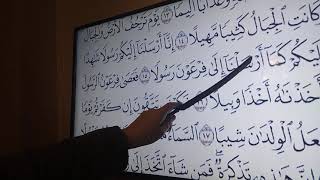 وَعَذَابًا أَلِيمًا ١٣ يَوْمَ تَرْجُفُ ٱلْأَرْضُ وَٱلْجِبَالُ
كَانَتِ ٱلْجِبَالُ كَثِيبًا مَّهِيلًا ١٤ إِنَّآ أَرْسَلْنَآ إِلَيْكُمْ رَسُولًا شَٰهِدًا
عَلَيْكُمْ كَمَآ أَرْسَلْنَآ إِلَىٰ فِرْعَوْنَ رَسُولًا ١٥ فَعَصَىٰ فِرْعَوْنُ ٱلرَّسُولَ
فَأَخَذْنَٰهُ أَخْذًا وَبِيلًا ١٦ تَتَّقُونَ إِن كَفَرْتُمْ يَوْمًا
يَجْعَلُ ٱلْوِلْدَٰنَ شِيبًا ١٧ ٱلسَّمَآءُ
إِنَّ هَٰذِهِۦ تَذْكِرَةٌ فَمَن شَآءَ ٱتَّخَذَ إِلَىٰ